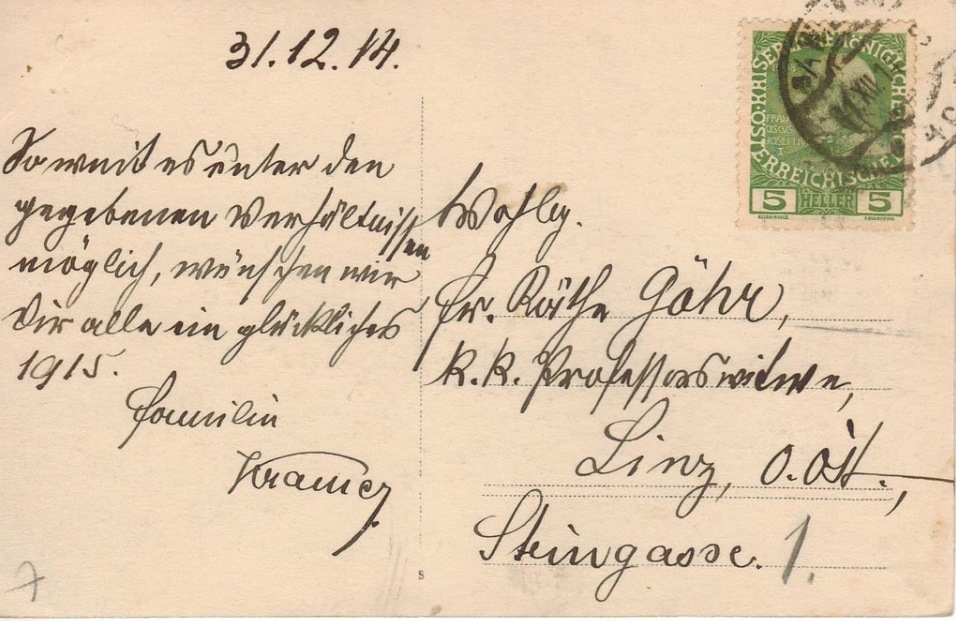 31.12.14.
Soweit es unter den
gegebenen Verhältnissen
möglich, wünschen wir
Dir alle ein glückliches
1915.
Familie
Wohlg.
Fr. Käthe Göhr,
K. K. Professorswitwe,
Linz, O. Öst.,
Steingasse 1.
KAISERLICH KÖNIGLICHE
ÖSTERREICHISCHE
5 HELLER 5
7
8